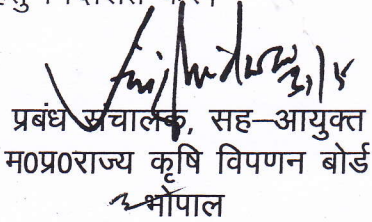 प्रबंध संचालक, सह–आयुक्त
म0प्र0राज्य कृषि विपणन बोर्ड
भोपाल